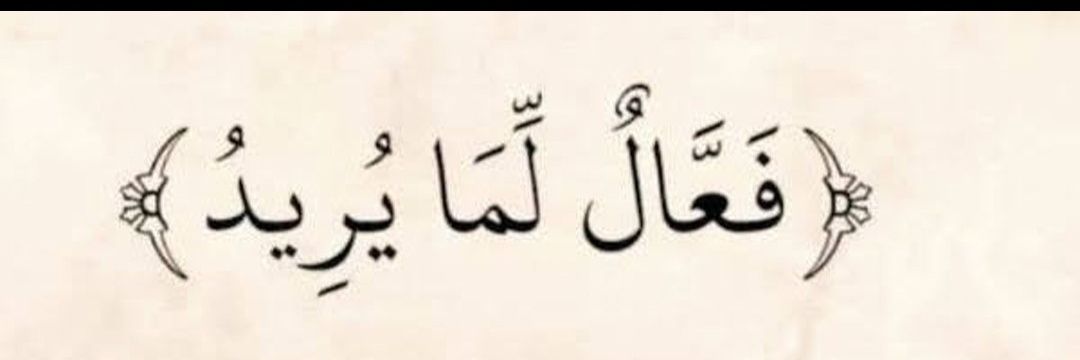 ﴿فَعَّالٌ لِّمَا يُرِيدُ﴾